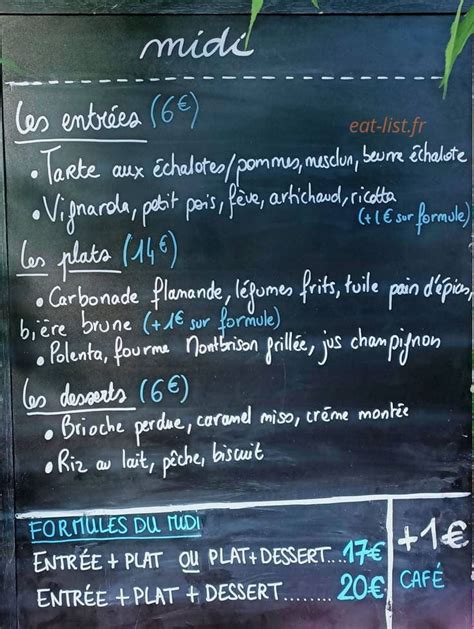 midi
Les entrées (6€)
eat-list.fr
• Tarte aux échalotes/pommes, mesclun, beurre échalote
• Vignarola, petit pois, fève, artichaud, ricotta
(+1€ sur formule)
Les plats (14€)
• Carbonade flamande, légumes frits, tuile pain d'épices,
bière brune (+1€ sur formule)
• Polenta, fourme Montbrison grillée, jus champignon
Les desserts (6€)
• Brioche perdue, caramel miso, crème montée
• Riz au lait, pêche, biscuit
FORMULES DU MIDI
ENTRÉE + PLAT OU PLAT+DESSERT....17€
ENTRÉE + PLAT + DESSERT........ 20€
+1€
CAFÉ